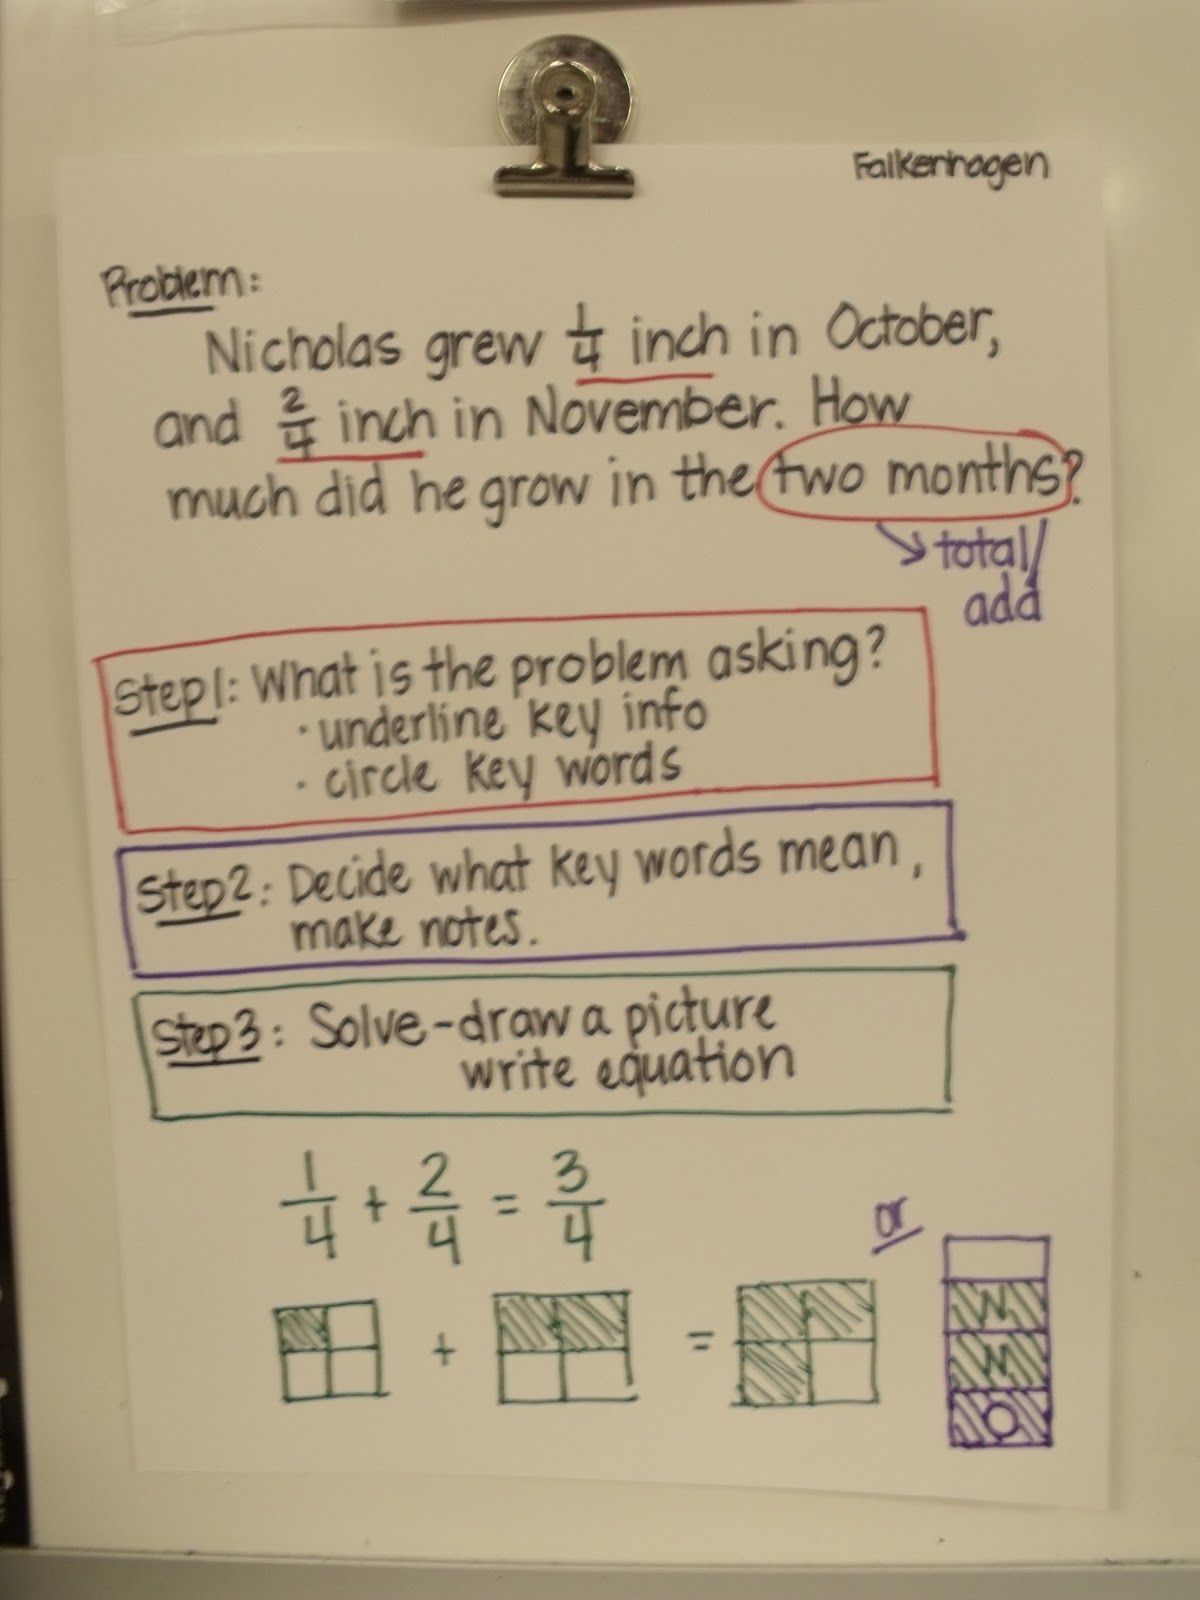 Falkenhagen
Problem:
Nicholas grew 1/4 inch in October,
and 2/4 inch in November. How
much did he grow in the two months?
total/
add
Step 1: What is the problem asking?
· underline key info
· circle key words
Step 2: Decide what key words mean,
make notes.
Step 3: Solve - draw a picture
write equation
1/4 + 2/4 = 3/4
or
+ =
N
N
O